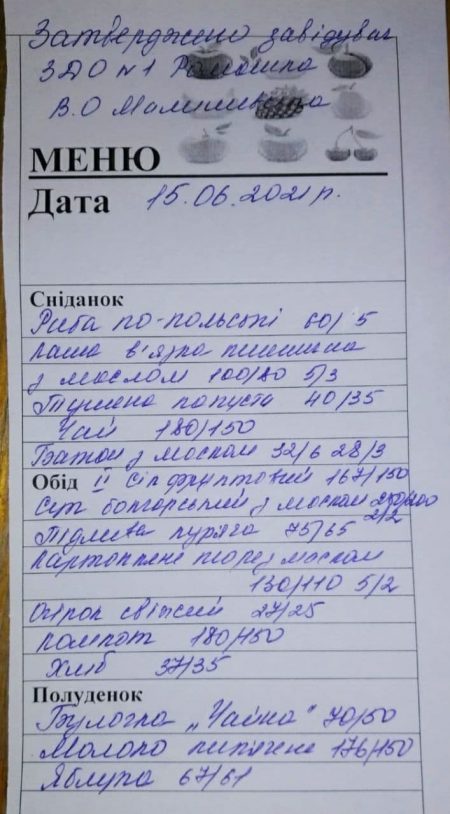 Затверджено завідувач
ЗДО №1 Ромашка
В.О
МЕНЮ
Дата 15.06.2021 р.
Сніданок
Риба по-польські 60/ 5
каша в'язка пшенична
з маслом 100/80 5/3
Тушена капуста 40/35
Чай 180/150
Батон з маслом 32/6 28/3
Обід ІІ Сік фруктовий 167/150
Суп болгарський з маслом 250/200
2/2
Підлива куряча 75/65
картопляне пюре з маслом
130/110 5/2
Огірок свіжий 27/25
компот 180/150
Хліб 37/35
Полуденок
Булочка „Чайна" 70/50
Молоко кипячене 176/150
Яблука 67/61